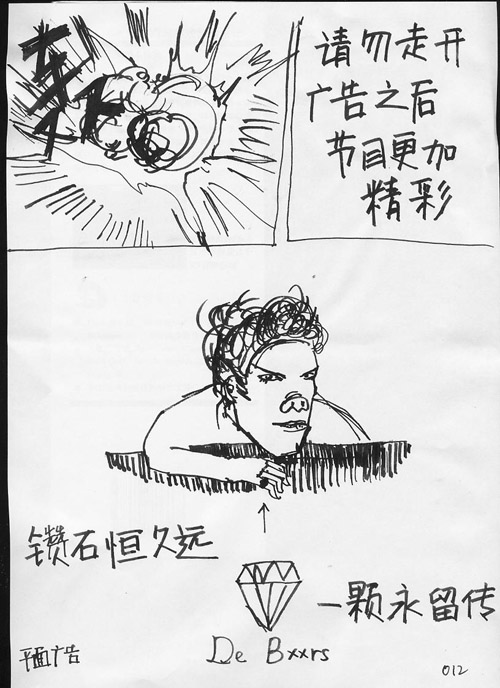 请勿走开
广告之后
节目更加
精彩
钻石恒久远
一颗永留传
De Bxxrs
平面广告
012